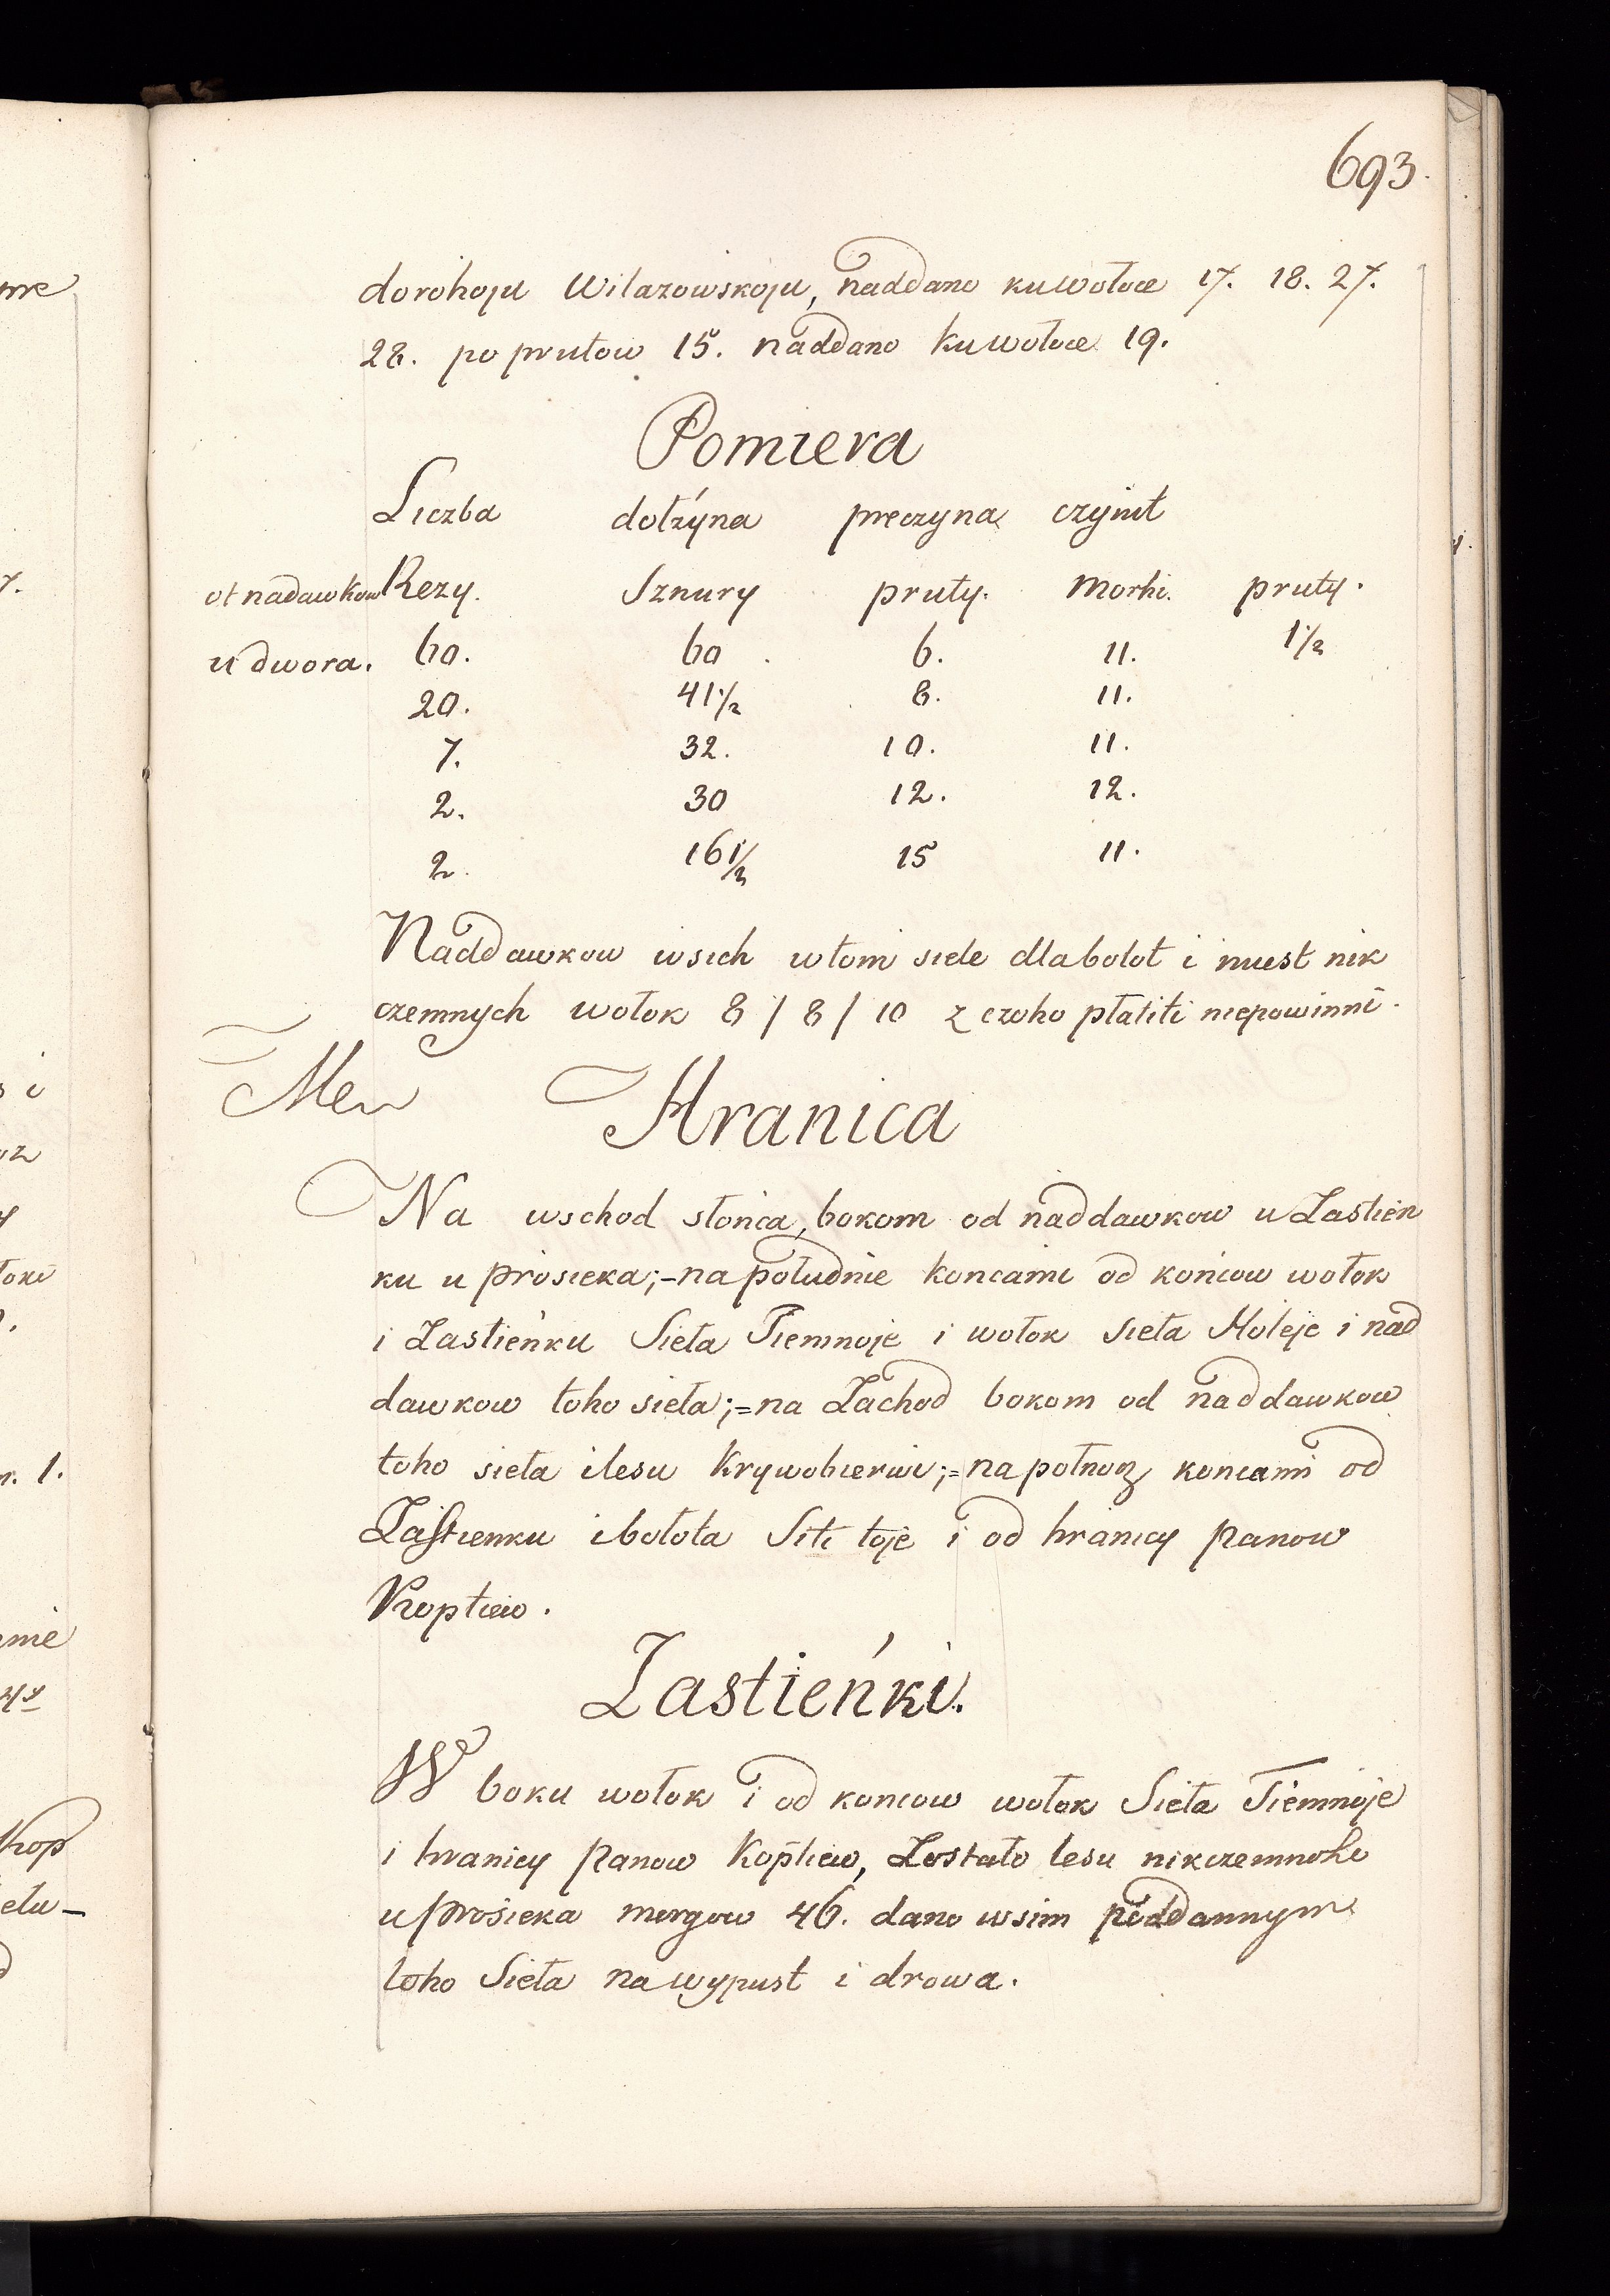 693.
dorohoju Wilazowskoju, naddano kuwołoce 17. 18. 27.
28. po prutow 15. naddano kuwołoce 19.
Pomiera
Liczba dołżyna preczyna czynit
ot nadawkow Rezy. Sznury pruty. Morhi. pruty.
u dwora. 60. 60. 6. 11. 1 1/2
20. 41 1/2 8. 11.
7. 32. 10. 11.
2. 30 12. 12.
2. 16 1/2 15 11.
Naddawkow wsich wtom siele dla bołot i miest nik
czemnych wołok 8 / 8 / 10 z czoho płatiti niepowinni.
Hranica
Na wschod słońca, bokom od naddawkow u Zastien
ku u prosieka;- na południe koncami od końcow wołok
i Zastieńku Sieła Tiemnoje i wołok sieła Holeje i nad
dawkow toho sieła;= na Zachod bokom od naddawkow
toho sieła ilesu Krywobierwi;= na połnocz koncami od
Zastienku ibołota Siti toje i od hranicy panow
Koptiew.
Zastieńki.
W boku wołok i od koncow wołok Sieła Tiemnoje
i hranicy panow Koptiew, Zostało lesu nikczemnoho
u prosieka morgow 46. dano wsim poddannym
toho Sieła na wypust i drowa.